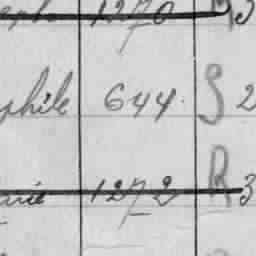 1270 R 3
phile 644 S 2
arie 1272 R 3